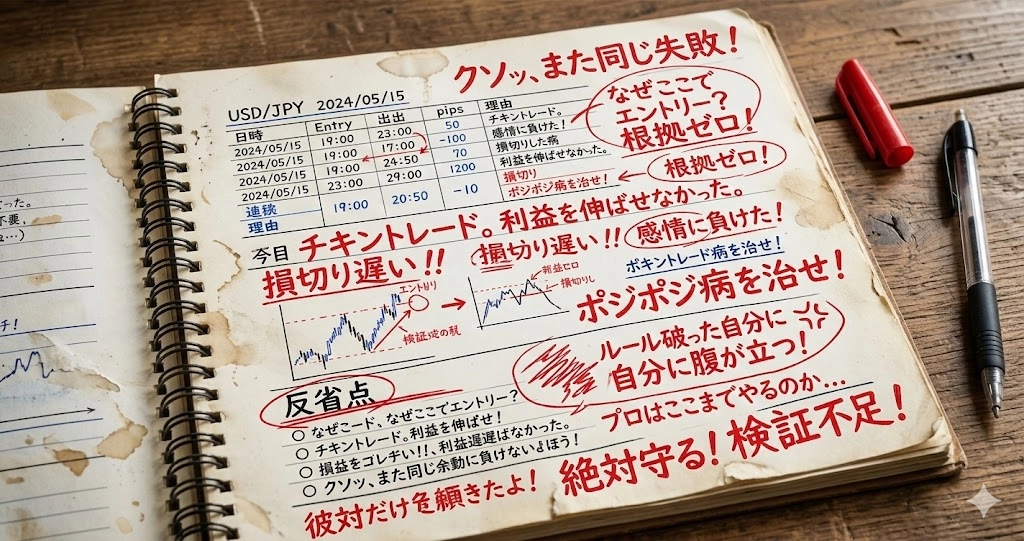 た。
不要.
ە…)
チ!
クソッ、また同じ失敗!
USD/JPY 2024/05/15
日時 Entry 出出 pips 理由
2024/05/15 19:00 23:00 50 チキントレード。
2024/05/15 19:00 17:00 -100 感情に負けた!
2024/05/15 19:00 24:50 70 損切りした病
2024/05/15 23:00 29:00 1200 利益を伸ばせなかった。
損切り
連稅 19:00 20:50 -10 ポジポジ病を治せ!
理由
なぜここで
エントリー?
根拠ゼロ!
根拠ゼロ!
今目 チキントレード。利益を伸ばせなかった。
損切り遅い!! 損切り遅い!! 感情に負けた!
ポキントレード病を治せ!
ポジポジ病を治せ!
損切りし
ルール破った自分に
自分に腹が立つ!
プロはここまでやるのか…
反省点
○ なぜこード、なぜここでエントリー?
○ チキントレード。利益を伸ばせ!
○ 損益をコレヂい!!、利益遅遅ばなかった。
○ クソッ、また同じ余動に負けないよほう!
彼対だけを願きたよ! 絶対守る! 検証不足!